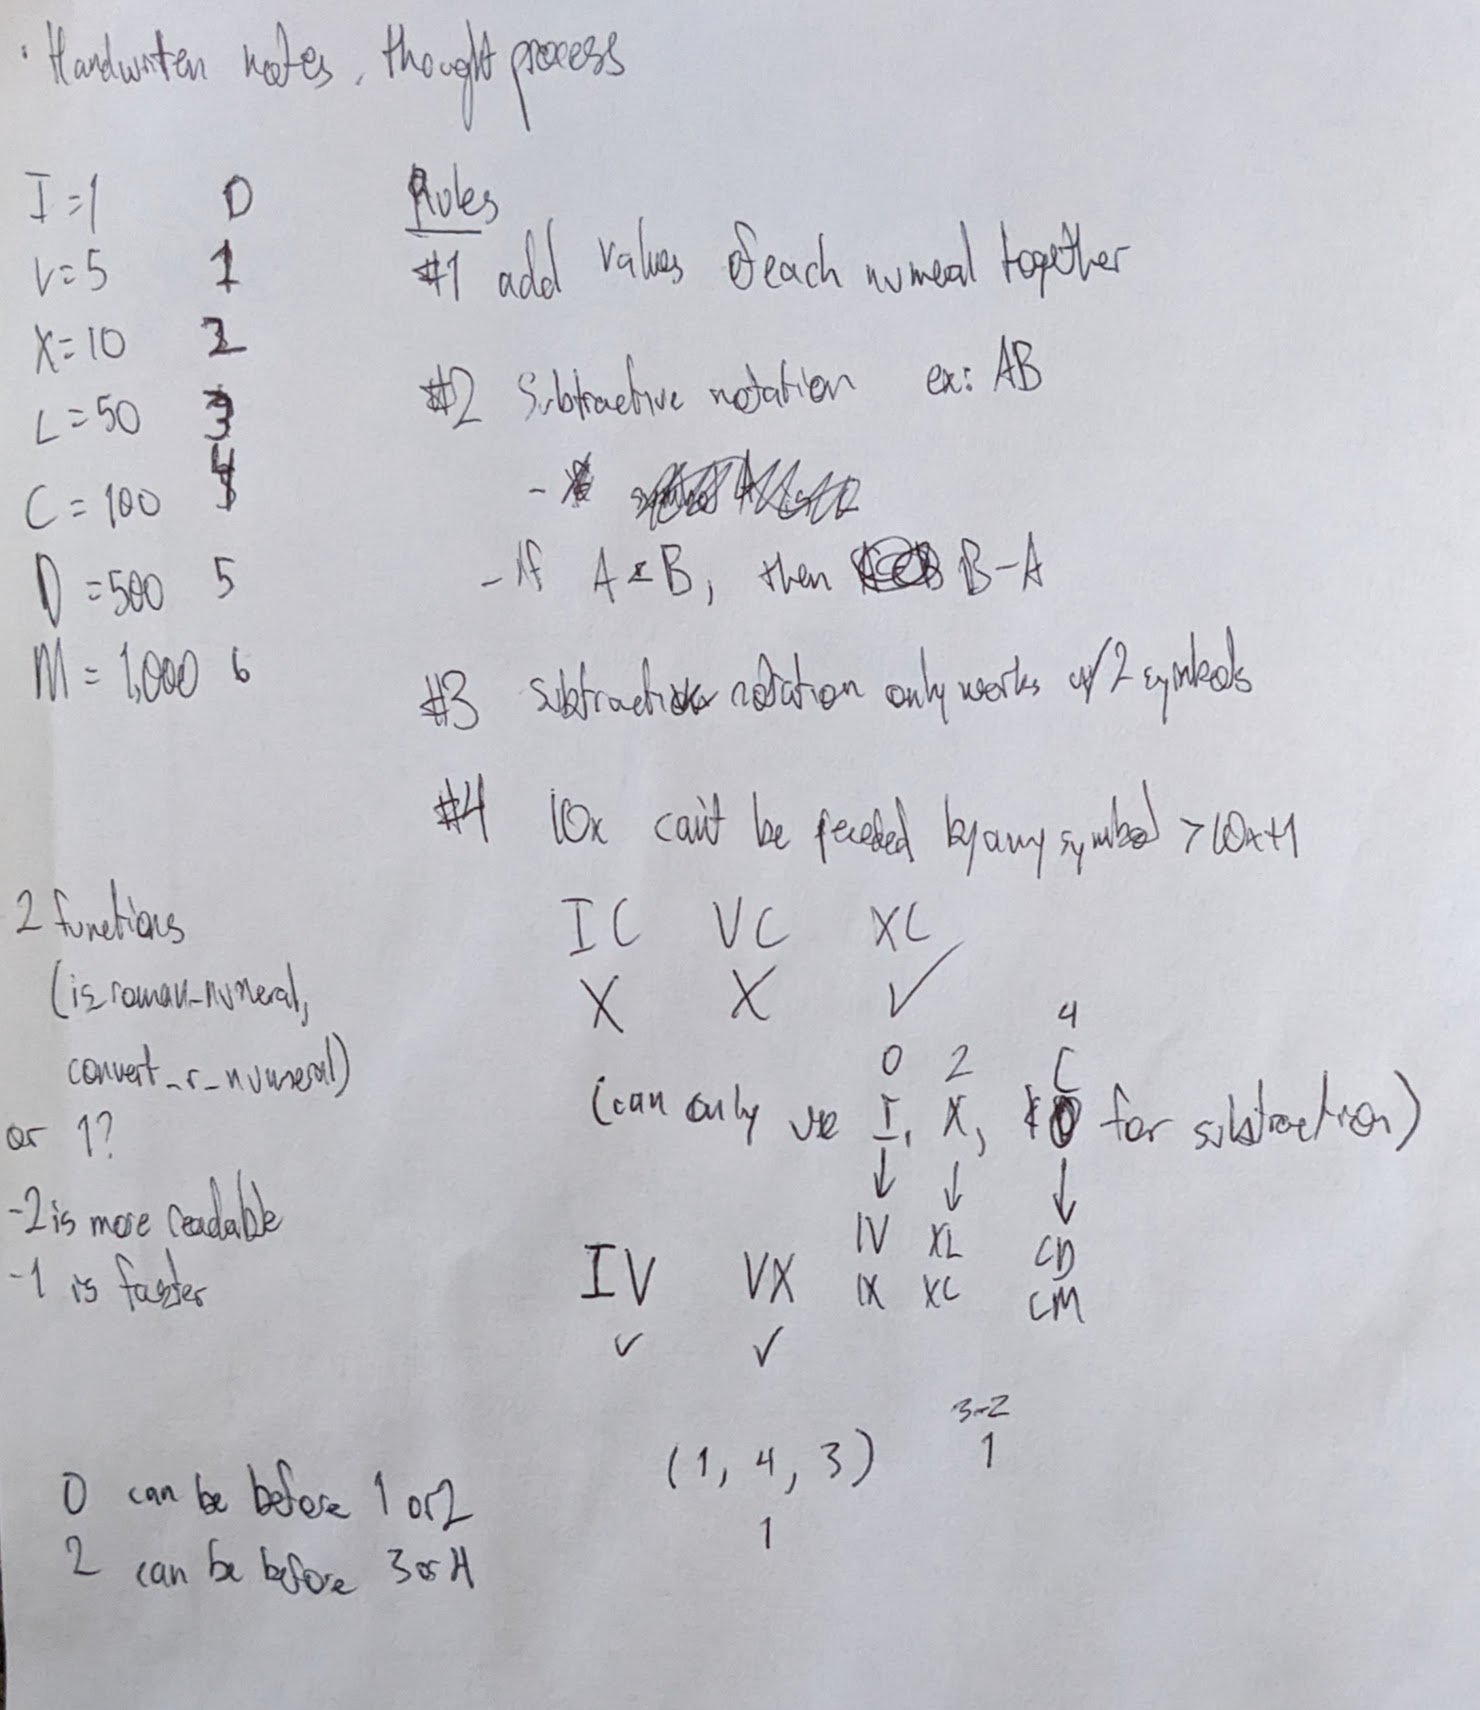 · Handwriten notes, thought process
I = 1 0
V = 5 1
X = 10 2
L = 50 3
C = 100 4
D = 500 5
M = 1,000 6
Rules
#1 add values of each numeral together
#2 Subtractive notation ex: AB
- If A < B, then B - A
#3 subtractive notation only works w/ 2 symbols
#4 10x can't be preceded by any symbol > 10x+1
IC VC XC
X X ✓
4
0 2 C
(can only use I, X, for subtraction)
↓ ↓ ↓
IV XL CD
IX XC CM
IV VX
✓ ✓
2 functions
(is_roman_numeral,
convert_r_numeral)
or 1?
- 2 is more readable
- 1 is faster
3-2
(1, 4, 3) 1
1
0 can be before 1 or 2
2 can be before 3 or 4